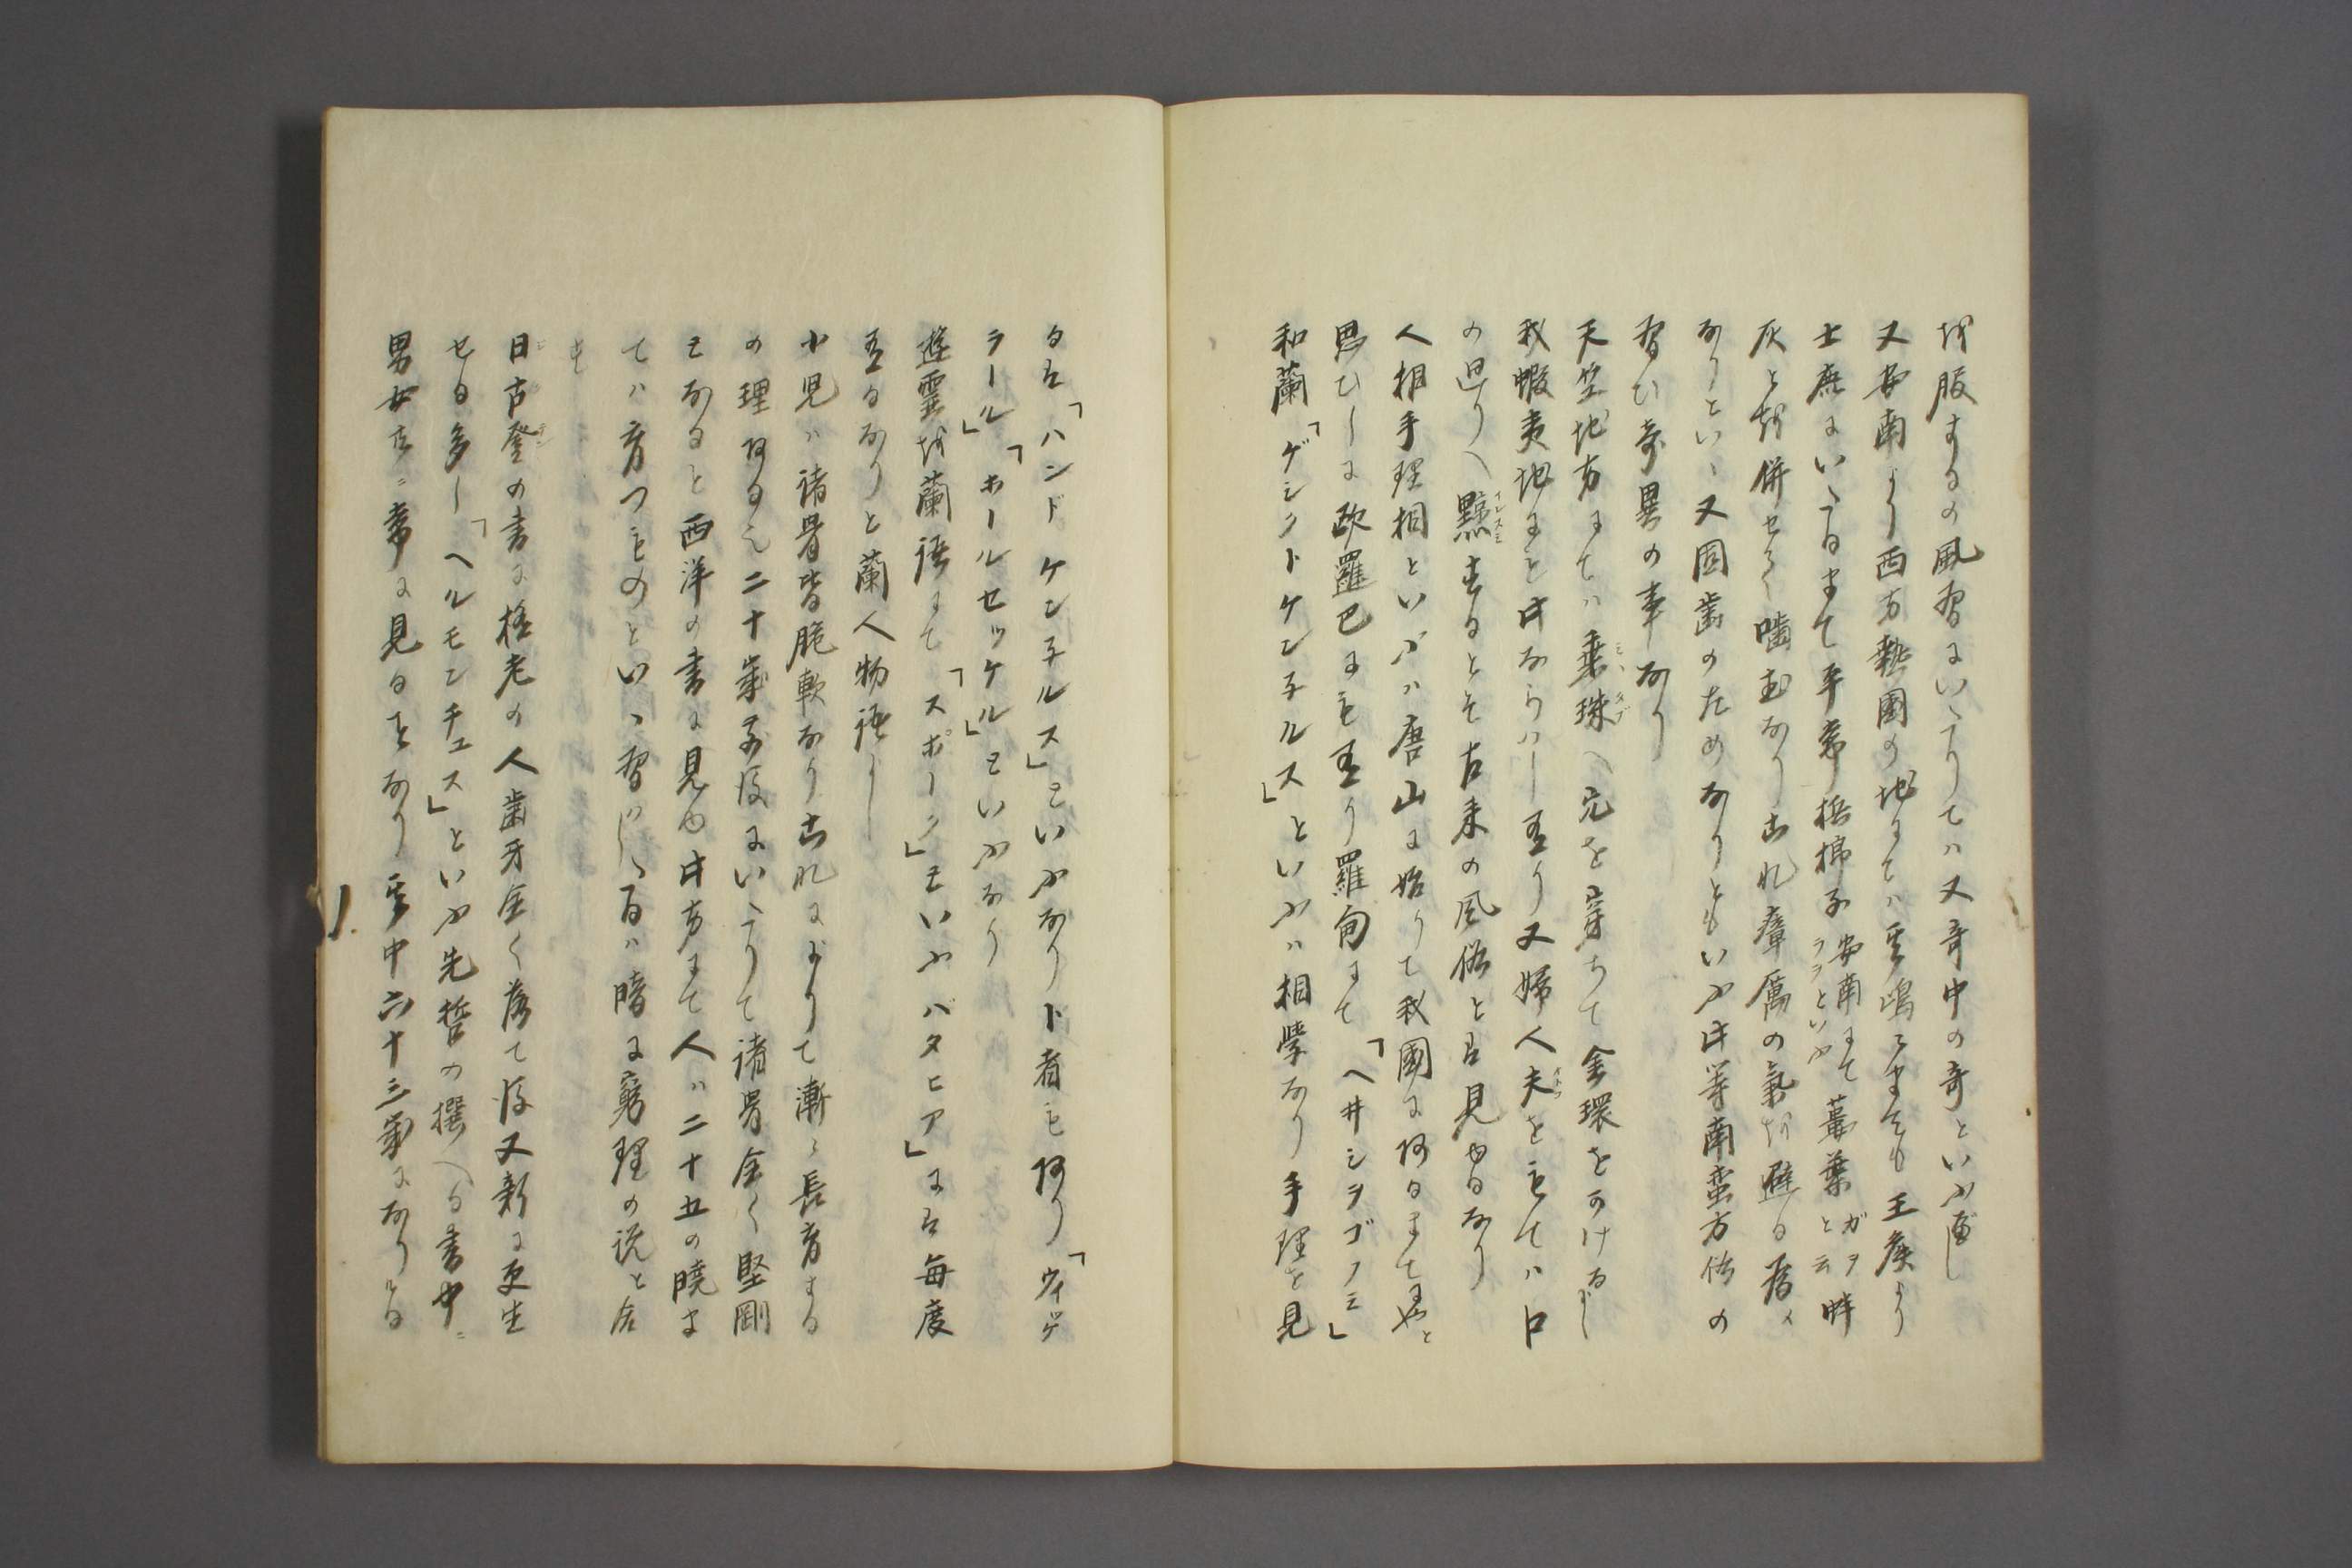 を服するの風習にいたりてハ又奇中の奇といふ歟し
又安南より西方熱国の地にてハ其嶋々までも王侯より
士庶にいたるまて平常檳榔子安南にてラヲといふ蔞葉ガヲと云蚌
灰とを併せく噛むなりこれ瘴癘の氣を避る為メ
なりといふ又固歯のためなりともいふ此等南蛮方俗の
習ひ奇異の事なり
天竺地方にてハ乗珠へ穴を穿ちて金環をかけるよし
我蝦夷地にも此ならハし有り又婦人夫をもてハ口
の廻りへ黥するとそ古来の風俗と見ゆるなり
人相手理相といふハ唐山に始りて我國にあるまてにやと
思ひしに欧羅巴にも有り羅甸にて「ヘ井シヲゴノミ」
和蘭「ゲシクトケンデルス」といふハ相學なり手理を見
る「ハンドケンデルス」といふなり卜者も有り「ウィッケ
ラール」「ホールセッゲル」といふなり
遊霊を蘭語にて「スポーク」といふバタヒア」に毎度
有るなりと蘭人物語りし
小児ハ諸骨皆脆軟なりこれによりて漸々長育する
の理ある也二十歳前後にいたりて諸骨全く堅剛
となると西洋の書に見ゆ此方にて人ハ二十五の暁ま
てハ育つものといひ習ハしたるハ暗に窮理の説と合
す
日古登の書に極老の人歯牙全く落て後又新に更生
せる多し「ヘルモンチュス」といふ先哲の撰へる書中ニ
男女共ニ常に見る事なり其中六十三歳になりける